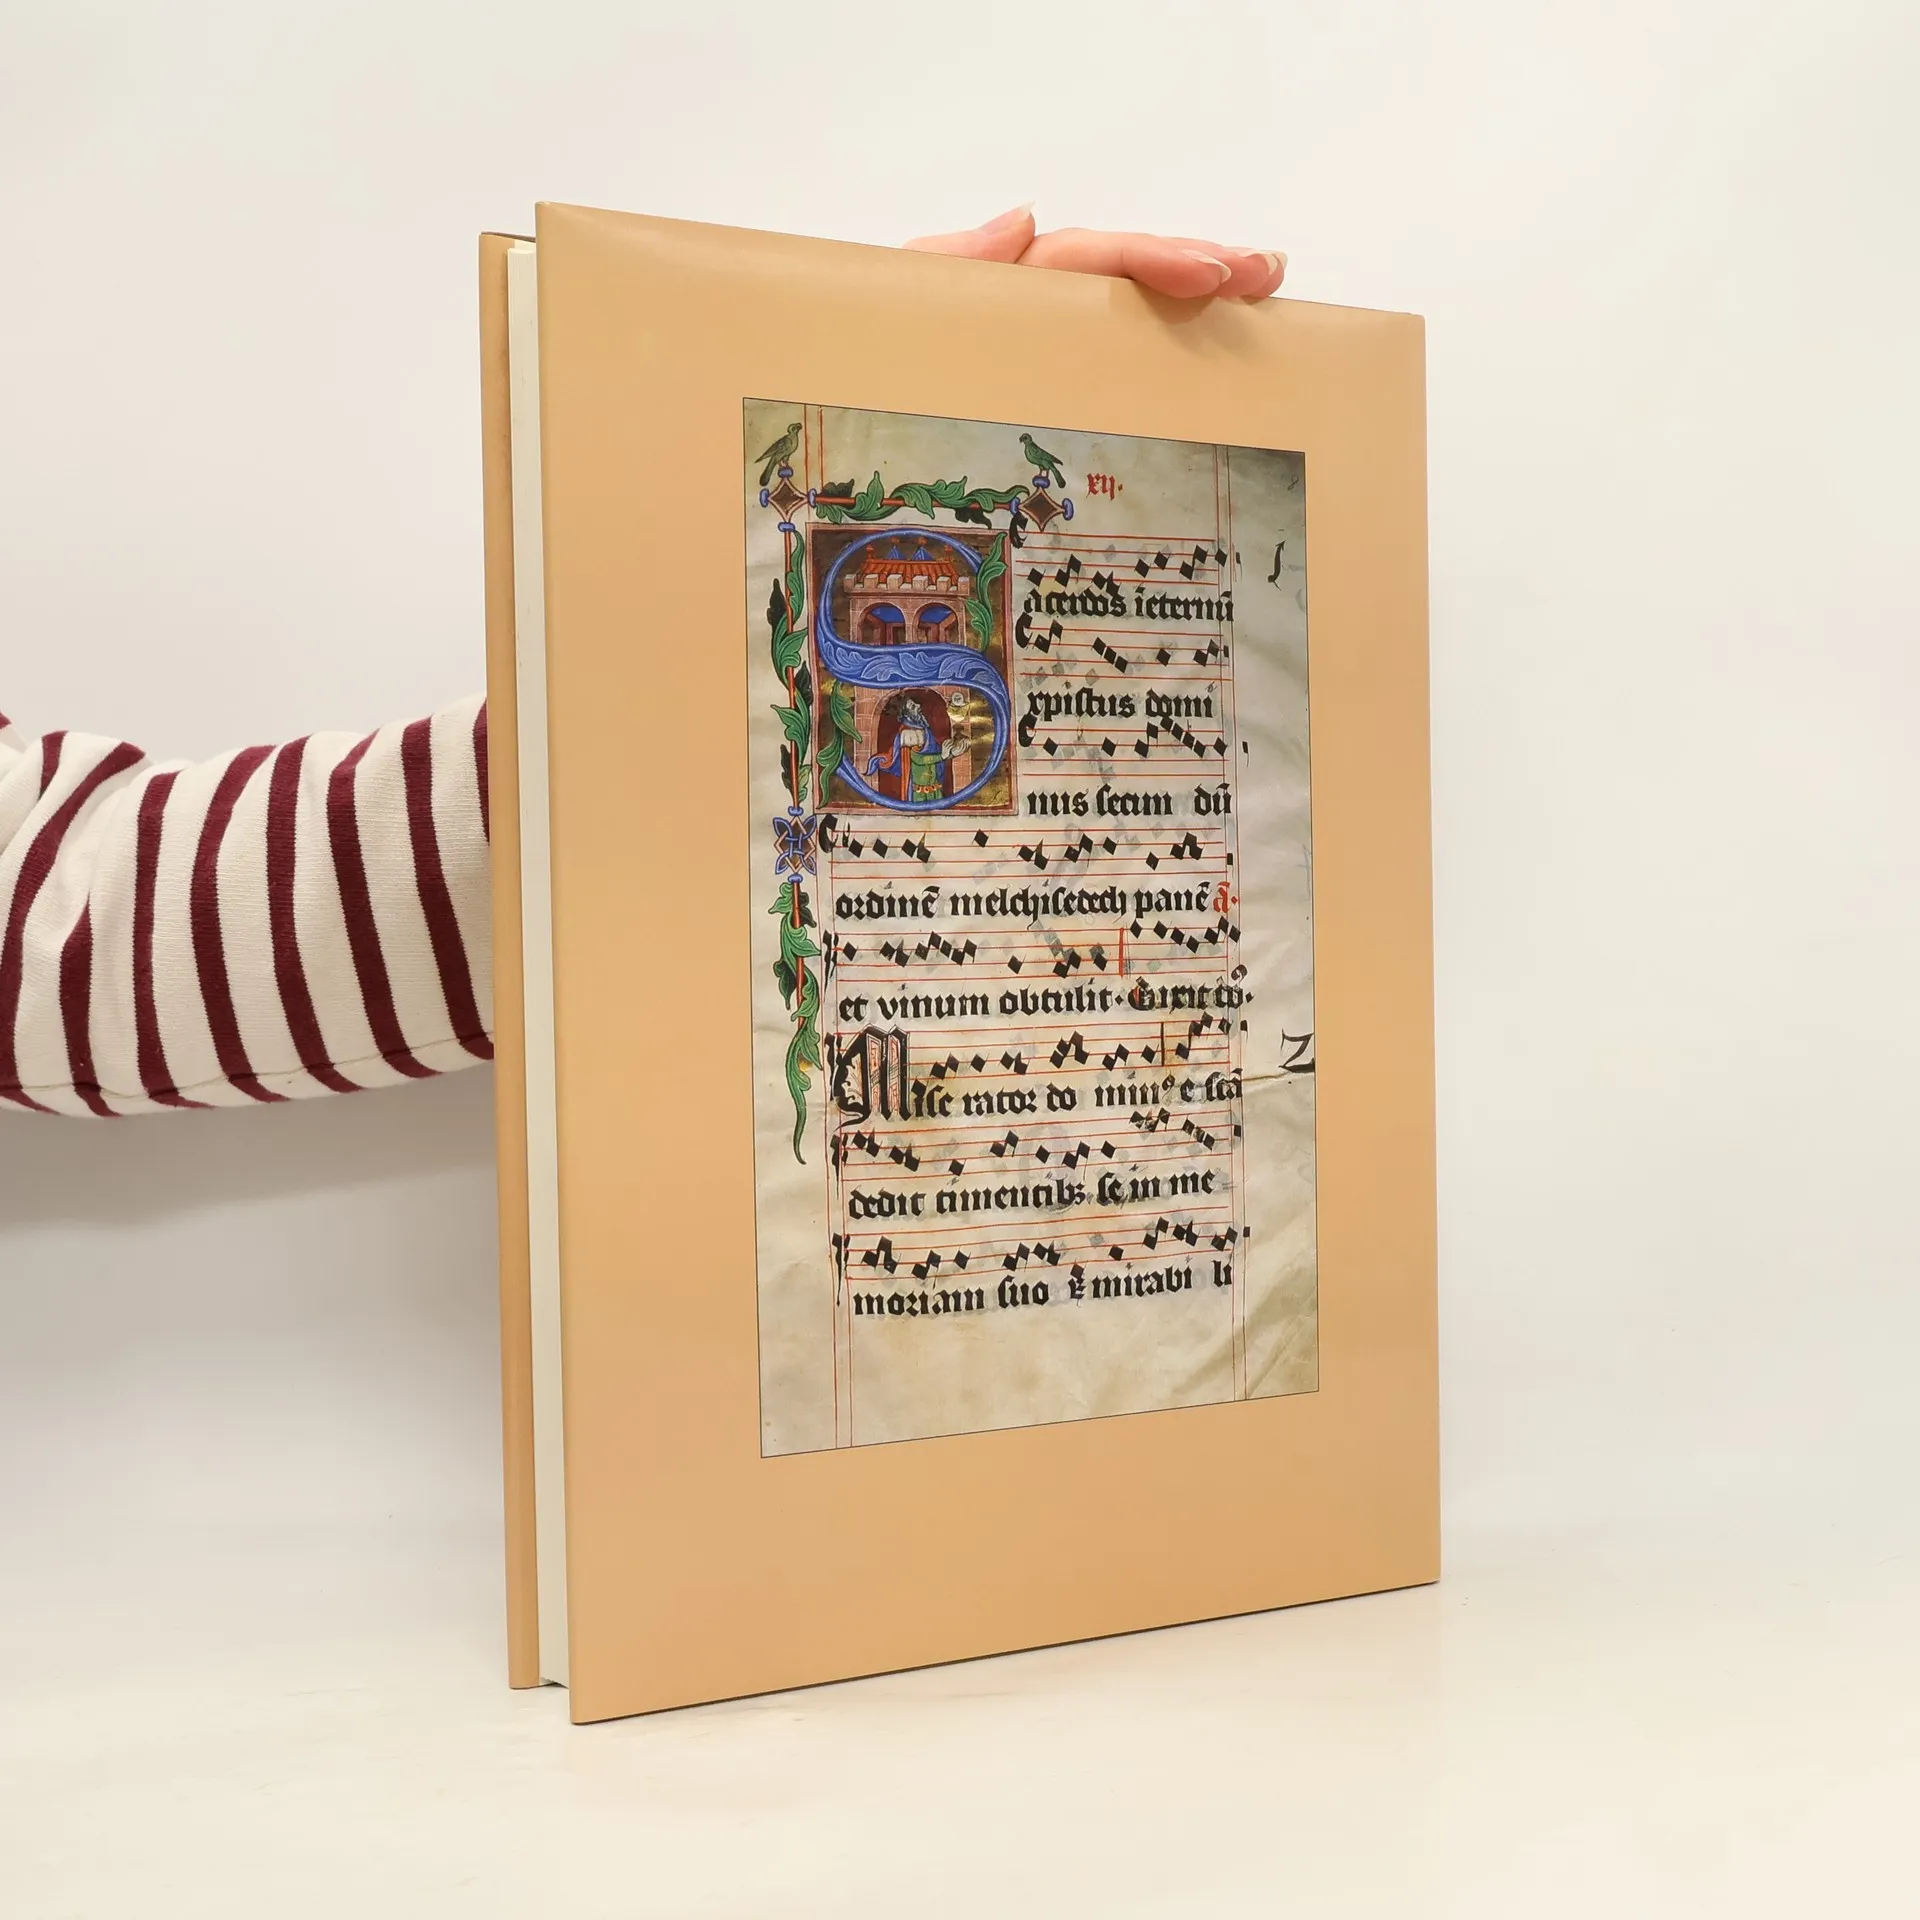 xij.
Sacerdos ieternū
xpistus domi
nus secun dū
ordinē melchisedech panē ā·
et vinum obtulit· Dixit dō.
Mise rator do min⁹ e scā
dedit timentibꝫ se in me
moriam suo ꝝ mirabi li